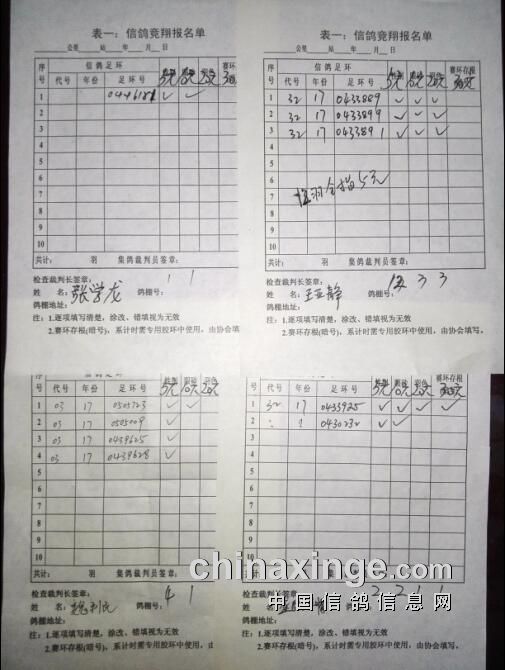 表一：信鸽竞翔报名单
公里 站 年 月 日
序号 信鸽足环 赛环存根
代号 年份 足环号 5元 10元 20元
1 ✓ ✓
2
3
4
5
6
7
8
9
10
共计： 羽 集鸽裁判员签章：
检查裁判长签章： 1 1
姓 名：张学龙 鸽棚号：
鸽棚地址：
注：1.逐项填写清楚，涂改、错填视为无效
2.赛环存根(暗号)，系计时需专用胶环中使用，由协会填写。
表一：信鸽竞翔报名单
公里 站 年 月 日
序号 信鸽足环 赛环存根
代号 年份 足环号 5元 10元 20元
1 32 17 0433889 ✓ ✓ ✓
2 32 17 0433899 ✓ ✓ ✓
3 32 17 0433891 ✓ ✓ ✓
4
5
6
7
8
9
10
共计： 羽 集鸽裁判员签章：
检查裁判长签章： 3 3
姓 名：王亚静 鸽棚号：
鸽棚地址：
注：1.逐项填写清楚，涂改、错填视为无效
2.赛环存根(暗号)，系计时需专用胶环中使用，由协会填写。
信鸽足环
序号 代号 年份 足环号 5元 10元 20元
1 03 17 0505723 ✓ ✓
2 03 17 0505009 ✓
3 03 17 0439625 ✓
4 03 17 0439628 ✓
5
6
7
8
9
10
共计： 羽 集鸽裁判员签章：
检查裁判长签章： 4 1
姓 名： 鸽棚号：
鸽棚地址：
注：1.逐项填写清楚，涂改、错填视为无效
2.赛环存根(暗号)，系计时需专用胶环中使用，由协
信鸽足环 赛环存根
号 代号 年份 足环号 5元 10元 20元
1 32 17 0433925 ✓ ✓ ✓ ✓
2 0430232 ✓ ✓
3
4
5
6
7
8
9
10
共计： 羽 集鸽裁判员签章：
检查裁判长签章： 2 2 1
姓 名： 鸽棚号：
鸽棚地址：
注：1.逐项填写清楚，涂改、错填视为无效
2.赛环存根(暗号)，系计时需专用胶环中使用，由协会填写。
chinaxinge.com
中国信鸽信息网